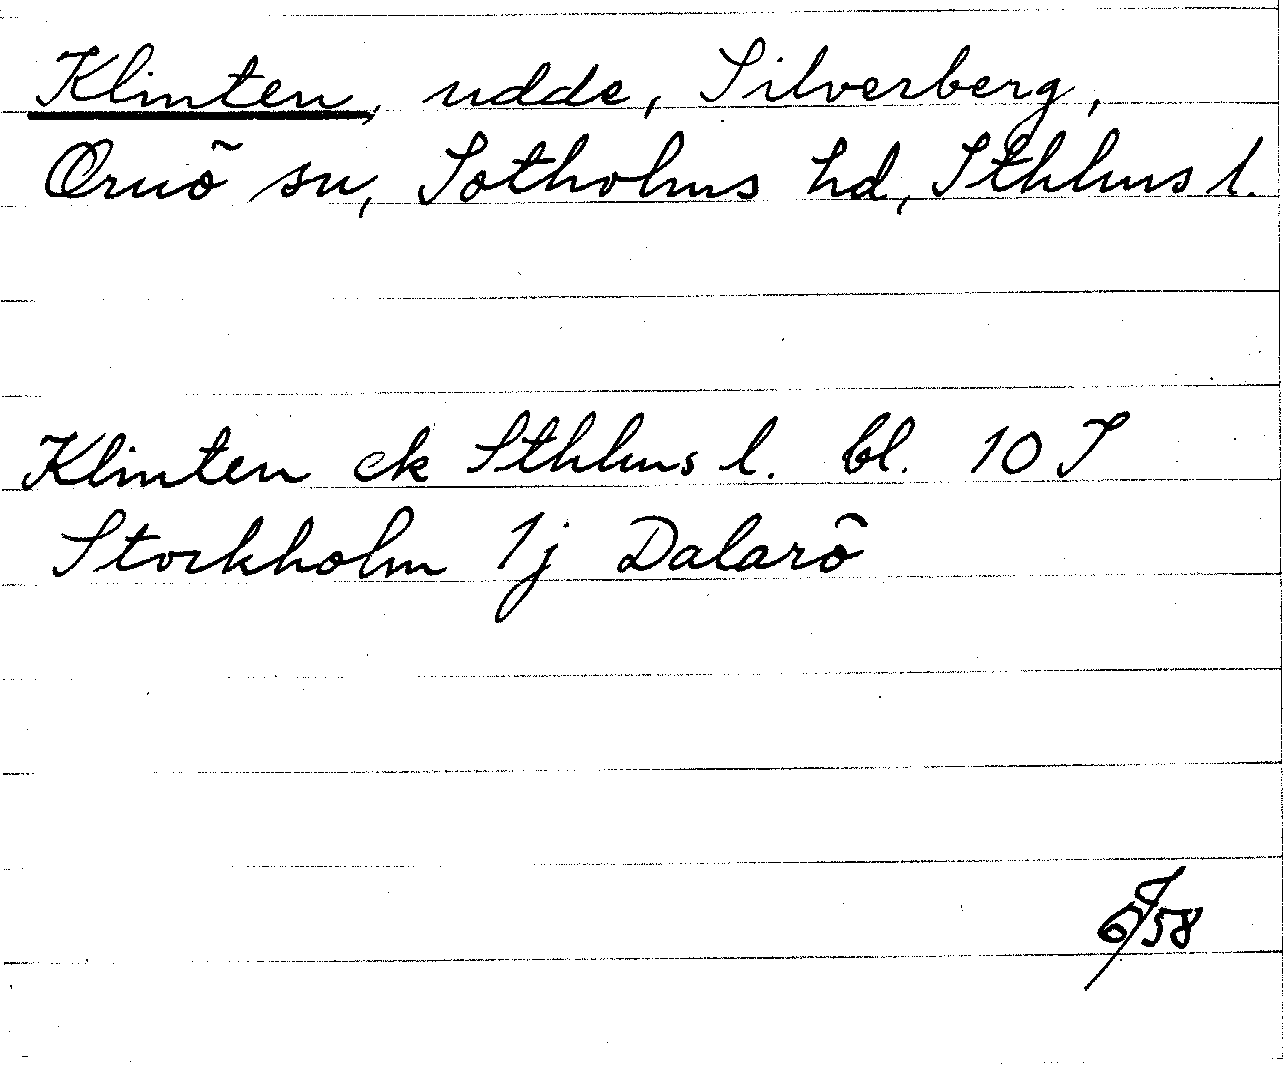 Klinten, udde, Silverberg,
Ornö sn, Sotholms hd, Sthlms l.
Klinten ek Sthlms l. bl. 10 J
Stockholm 1j Dalarö